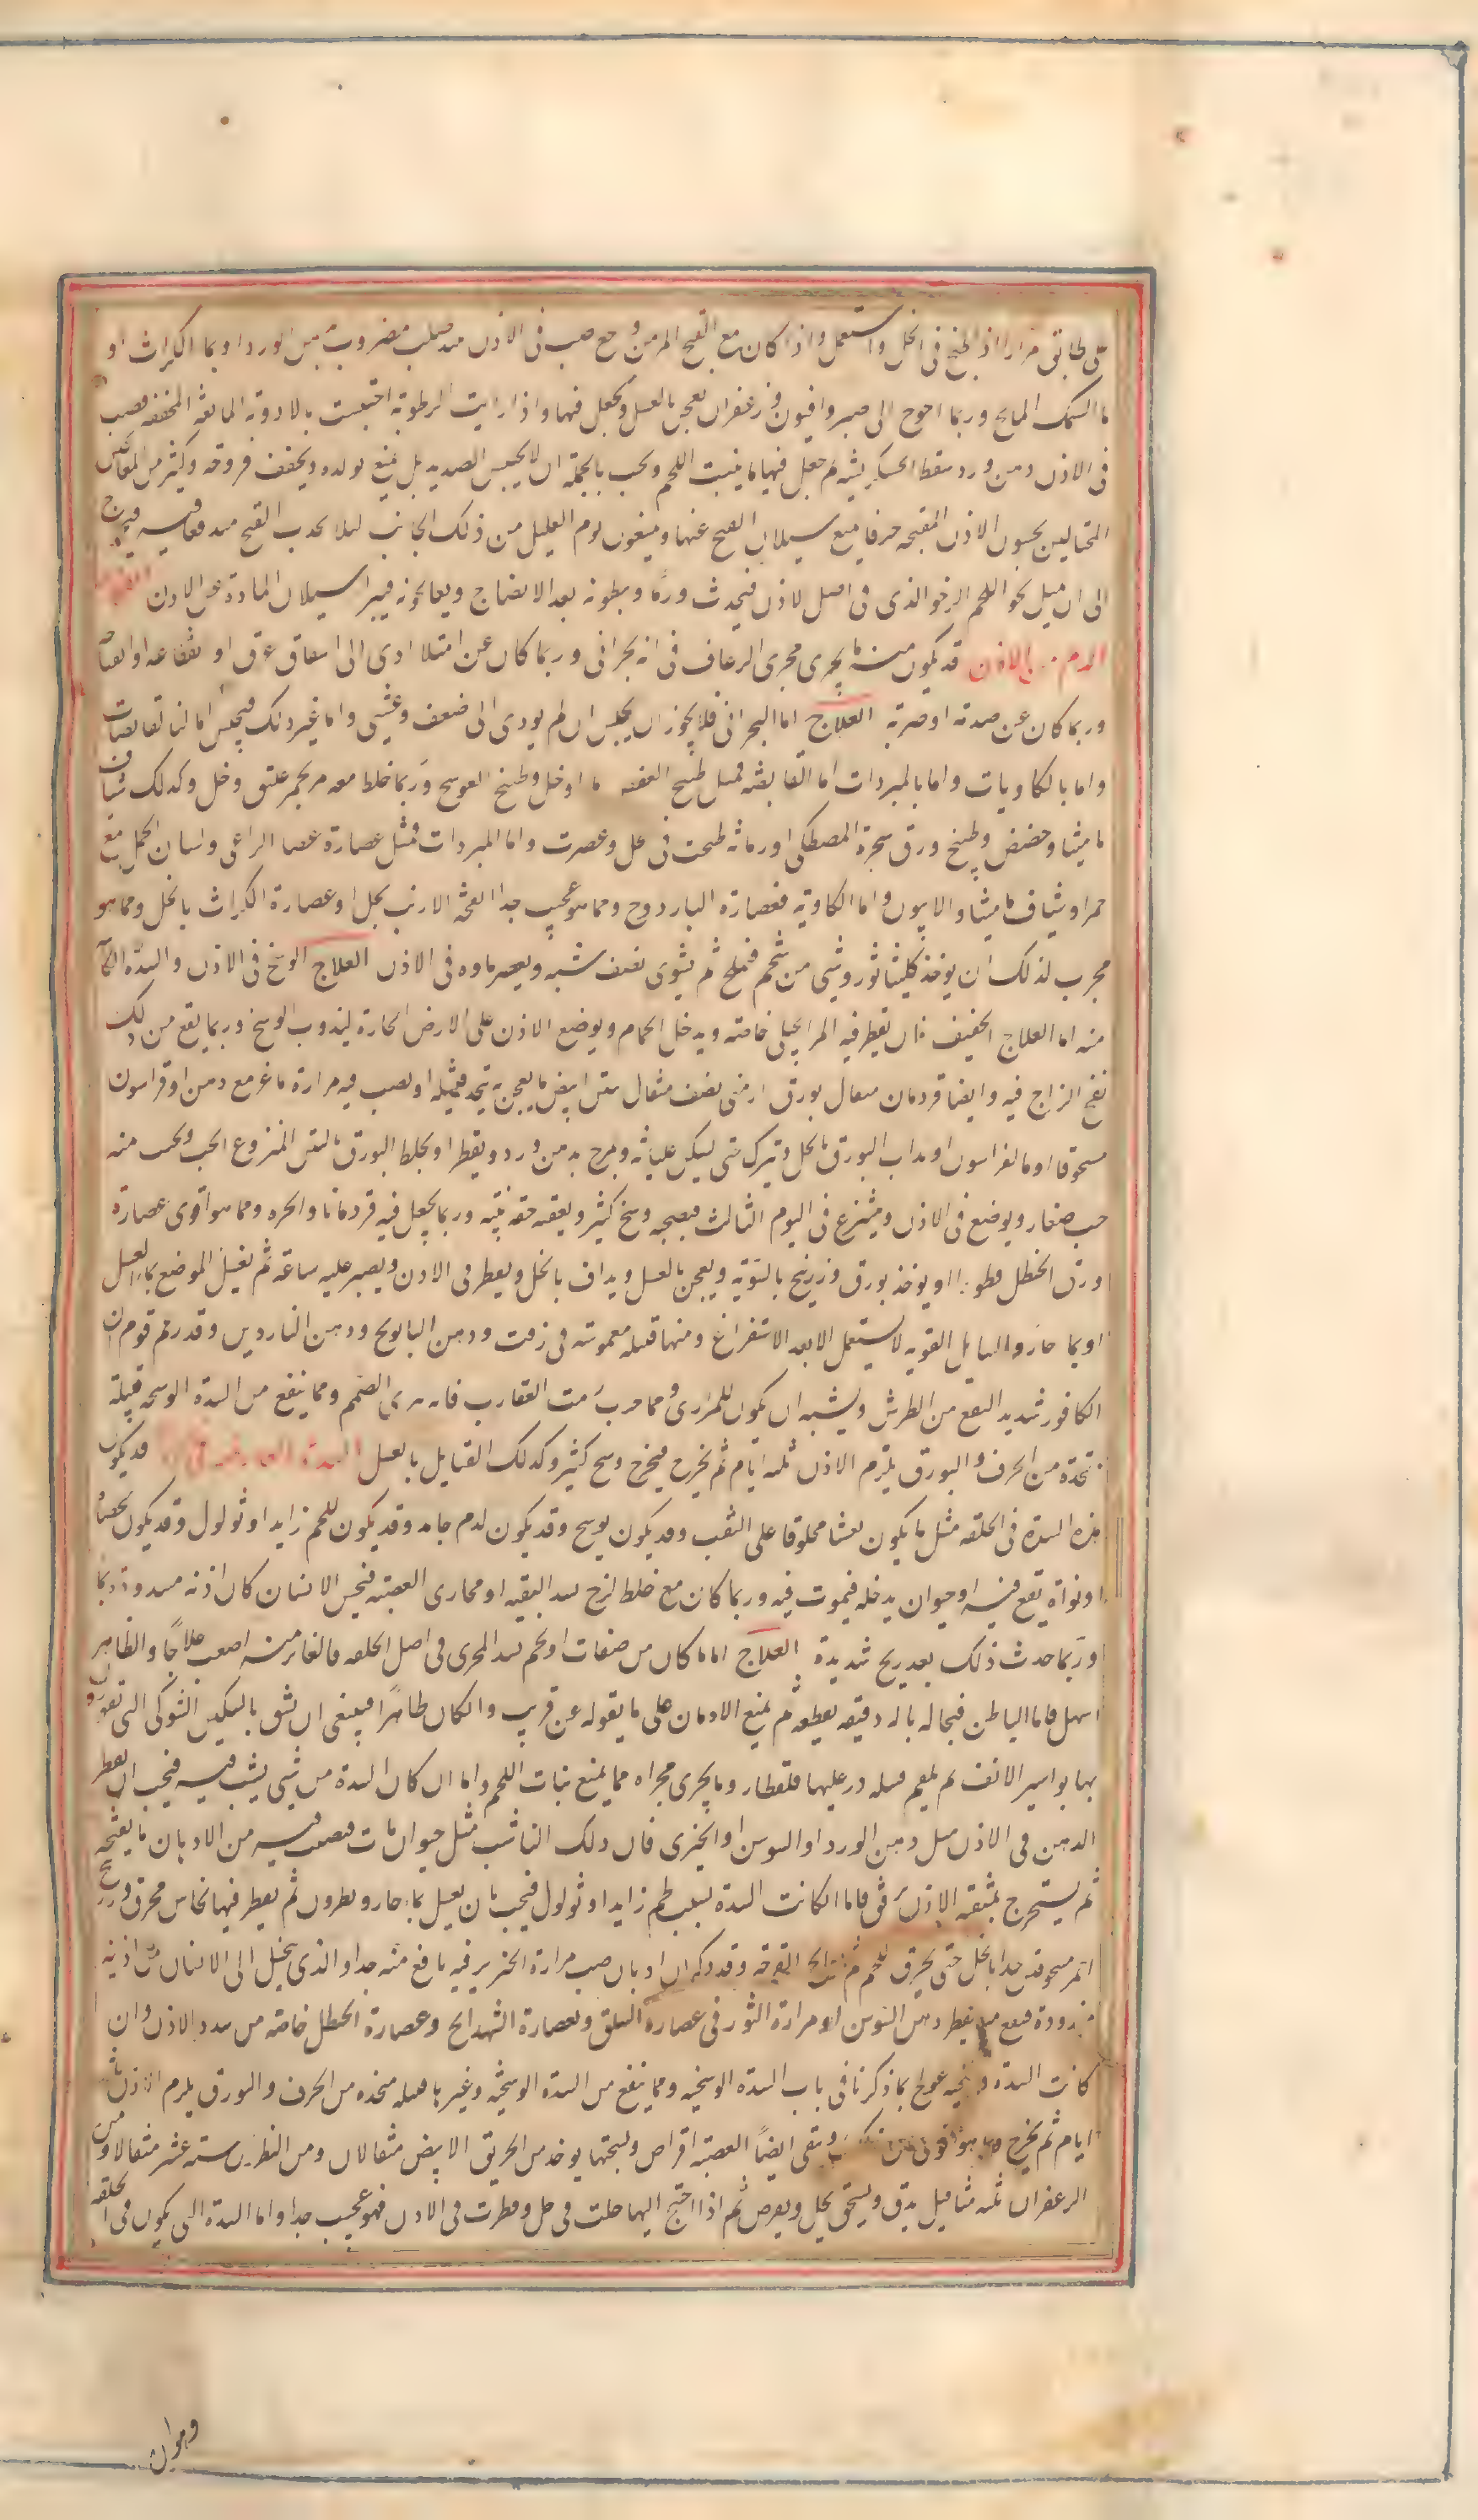 على طابق مرارا اذا طبخ فى الخل واستعمل واذا كان مع القيح المزمن وجع صب فى الاذن مضروب بدهن الورد او بما الكراث او
ما السمك المالح وربما احوج الى صبر وافيون وزعفران يعجن بالعسل ويجعل فيها واذا رايت الرطوبة احتبست بالادوية المانعة المجففه فصب
فى الاذن دهن ورد ثم جعل فيها ما ينبت اللحم ويجب بالجملة ان لا يحبس الصديد بل يمنع تولده ويجفف قروحه وكثير من المعالجين
المحتالين يحبسون الاذن المقيحه خرقا يمنع سيلان القيح عنها ويمنعون نوم العليل من ذلك الجانب ليلا
الى ان ميل نحو اللحم الرخو الذى فى اصل الاذن فيحدث ورما ويبطونه بعد الانضاج ويعالجونه فيبرا سيلان المادة عن الاذن
الدم من الاذن قد يكون منه ما يجرى مجرى الرعاف فى انه بحرانى وربما كان عن امتلا ادى الى انشقاق عرق او انقطاعه او انفتاحه
وربما كان عن صدمة او ضربة العلاج اما البحرانى فلا يجوز ان يحبس ان لم يودى الى ضعف وغشى واما غير ذلك فيحبس اما بالقابضات
واما بالكاويات واما بالمبردات اما القابضه فمثل طبيخ العفص بما او خل وطبيخ العوسج وربما خلط معه مر بخمر عتيق وخل وكذلك شياف
ماميثا وحضض وطبيخ ورق شجرة المصطكى او رمانه طبخت فى خل وعصرت واما المبردات فمثل عصارة عصا الراعى ولسان الحمل مع
خمر او شياف ماميثا والافيون واما الكاوية فعصارة الباردوج ومما هو عجيب جدا انفحة الارنب بخل او عصارة الكراث بالخل ومما هو
مجرب لذلك ان يوخذ كليتا ثور وشى من شحم فيملح ثم يشوى نصف شيه ويعصر ماوه فى الاذن العلاج الوسخ فى الاذن والسدة الكاينة
منه اما العلاج الخفيف فان يقطر فيه المر الجبلى خاصة ويدخل الحمام ويوضع الاذن على الارض الحارة ليذوب الوسخ وربما يقع من ذلك
نفخ الزاج فيه وايضا قردمان مثقال بورق ارمنى نصف مثقال تين ابيض ما يعجن به يتخذ فتيله او يصب فيه مرارة ماعز مع دهن او قراسون
مسحوقا او ماالفراسون او يذاب البورق بالخل ويترك حتى يسكن غليانه ويمزج بدهن ورد ويقطر او يخلط البورق بالتين المنزوع الحب ويحبب منه
حب صغار ويوضع فى الاذن وينزع فى اليوم الثالث فيصحبه وسخ كثير ويعقبه خفة بينة وربما يجعل فيه قردمانا والحره ومما هو اقوى عصارة
ورق الحنظل قطورا او يوخذ بورق وزرنيخ بالسوية ويعجن بالعسل ويداف بالخل ويقطر فى الاذن ويصبر عليه ساعة ثم يغسل الموضع بما العسل
او بما حار والفتايل القويه لا يستعمل الا بعد الاستفراغ ومنها فتيله مغموسة فى زفت ودهن البابونج ودهن الناردين وقد زعم قوم ان
الكافور شديد النفع من الطرش ويشبه ان يكون للمرارى ومما جرب زيت العقارب فانه يبرى الصمم ومما ينفع من السدة الوسخه فتيلة
متخذة من الحرف والبورق يلزم الاذن ثلثه ايام ثم يخرج فيخرج وسخ كثير وكذلك الفتايل بالعسل قد يكون
هذه السدة فى الخلقه مثل ما يكون غشا مخلوقا على الثقب وقد يكون لوسخ وقد يكون لدم جامد وقد يكون للحم زايد او ثولول وقد يكون لحصاة
او نواة يقع فيه او حيوان يدخله فيموت فيه وربما كان مع خلط لزج يسد الثقبه او مجارى العصبه فيحس الانسان كان اذنه مسدودة
وربما حدث ذلك بعد ريح شديدة العلاج اما ما كان من صفاق او لحم يسد المجرى فى اصل الخلقه فالغاير منه اصعب علاجا والظاهر
اسهل فاما الباطن فيحتاله بالة دقيقه يقطعه ثم يمنع الادمان على ما نقوله عن قريب وان كان ظاهرا فينبغى ان يشق بالسكين الشوكى التى تقور
بها بواسير الانف ثم يلقم فتيله ذر عليها قلقطار وما يجرى مجراه مما يمنع نبات اللحم واما ان كان السدة من شى نشب فيه فيجب ان يقطر
الدهن فى الاذن مثل دهن الورد او السوسن او الخيرى فان كان ذلك الناشب مثل حيوان مات فيصب فيه من الادهان ما يفتحه
ثم يستخرج بمنقبة الاذن برفق فاما ان كانت السدة بسبب لحم زايد او ثولول فيجب ان يغسل بما حار ونطرون ثم يقطر فيها نحاس محرق وزرنيخ
احمر مسحوقين جدا بالخل حتى يحرق اللحم ثم يعالج القرحه وقد ذكر ان ادمان صب مرارة الخنزير فيه نافع منه جدا والذى يخيل الى الانسان ان اذنيه
مسدودة فينفع منه يقطر دهن السوسن او مرارة الثور فى عصارة السلق وعصارة الشهدانج وعصارة الحنظل خاصة من سدد الاذن وان
كانت السدة وسخيه عولج بما ذكرنا فى باب السدة الوسخيه ومما ينفع من السدة الوسخية وغيرها فتيله متخذه من الحرف والبورق يلزم الاذن ثلثة
ايام ثم يخرج ومما هو اقوى وينقى ايضا العصبة اقراص ونسختها يوخذ من الخربق الابيض مثقالان ومن النطرون سته عشر مثقالا ومن
الزعفران ثلثه مثاقيل يدق ويسحق بخل ويقرص ثم اذا احتيج اليها حلت فى خل وقطرت فى الاذن فهو عجيب جدا واما السدة التى يكون فى الخلقه
وهوان